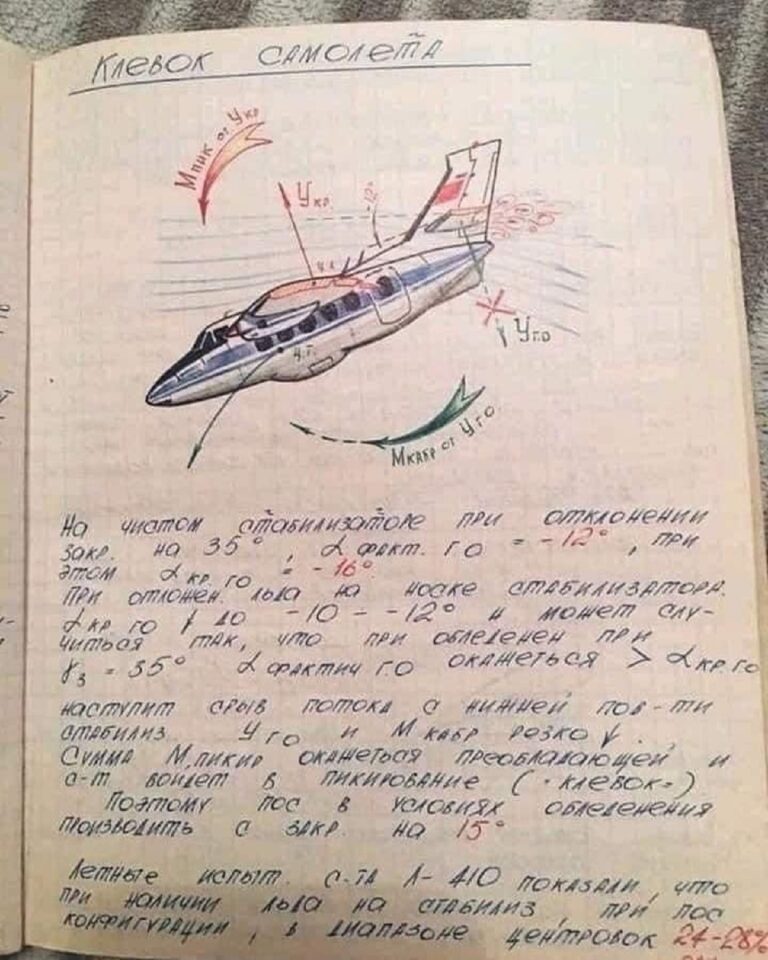 Клевок самолета
Мпик от Yкр
Yкр.
-12°
Ч.Т.
Yг.о
Мкабр от Yг.о.
На чистом стабилизаторе при отклонении
закр. на 35°, α факт. го = -12°, при
этом α кр. го = -16°.
При отложен. льда на носке стабилизатора.
α кр го ↓ до -10 - -12° и может слу-
читься так, что при обледенен при
γз = 35° α фактич го окажеться > α кр.го
наступит срыв потока с нижней пов-ти
стабилиз. Yго и М кабр резко ↓.
Сумма М.пикир окажеться преобладающей и
с-т войдет в пикирование ("клевок")
Поэтому пос в условиях обледенения
производить с закр. на 15°
Летные испыт. с-та Л-410 показали, что
при наличии льда на стабилиз, при пос
конфигурации, в диапазоне центровок 24-28%